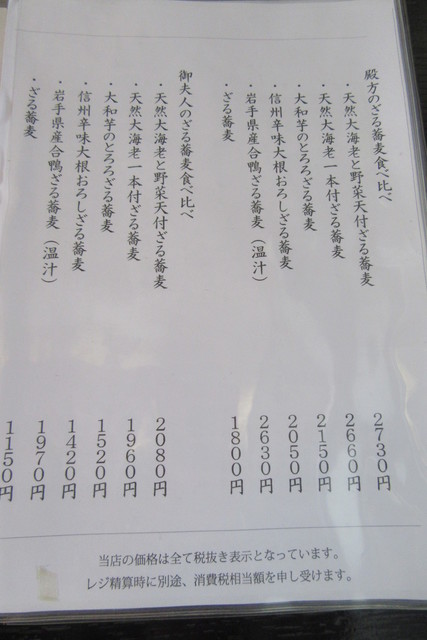 殿方のざる蕎麦食べ比べ
・天然大海老と野菜天付ざる蕎麦 2730円
・天然大海老一本付ざる蕎麦 2660円
・大和芋のとろろざる蕎麦 2150円
・信州辛味大根おろしざる蕎麦 2050円
・岩手県産合鴨ざる蕎麦（温汁） 2630円
・ざる蕎麦 1800円
御夫人のざる蕎麦食べ比べ
・天然大海老と野菜天付ざる蕎麦 2080円
・天然大海老一本付ざる蕎麦 1960円
・大和芋のとろろざる蕎麦 1520円
・信州辛味大根おろしざる蕎麦 1420円
・岩手県産合鴨ざる蕎麦（温汁） 1970円
・ざる蕎麦 1150円
当店の価格は全て税抜き表示となっています。
レジ精算時に別途、消費税相当額を申し受けます。